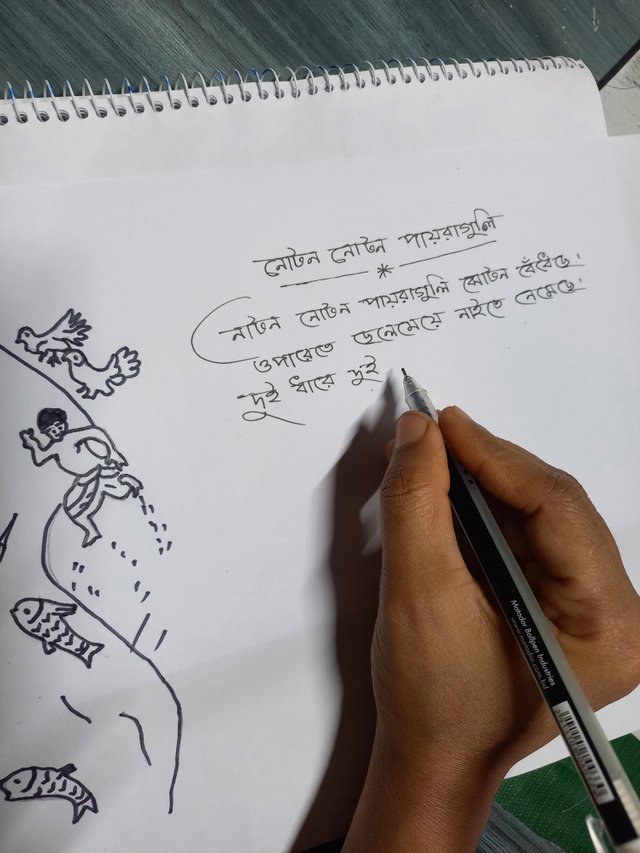 নোটন নোটন পায়রাগুলি
নোটন নোটন পায়রাগুলি ঝোটন বেঁধেছে।
ওপারেতে ছেলেমেয়ে নাইতে নেমেছে।
দুই ধারে দুই
Matador Ballpen Industries
www.matador.com.bd